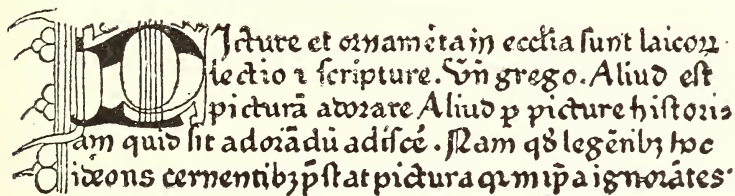 Picture et ornamēta in ecclia sunt laicoꝝ
lectio ⁊ scripture. Vn̄ grego. Aliud est
picturā adorare Aliud ꝑ picture histori
am quid sit adorādū adiscē. Nam qd̓ legētibꝫ hoc
ideons cernentibꝫ p̄stat pictura qꝛ in ip̄a ignorātes